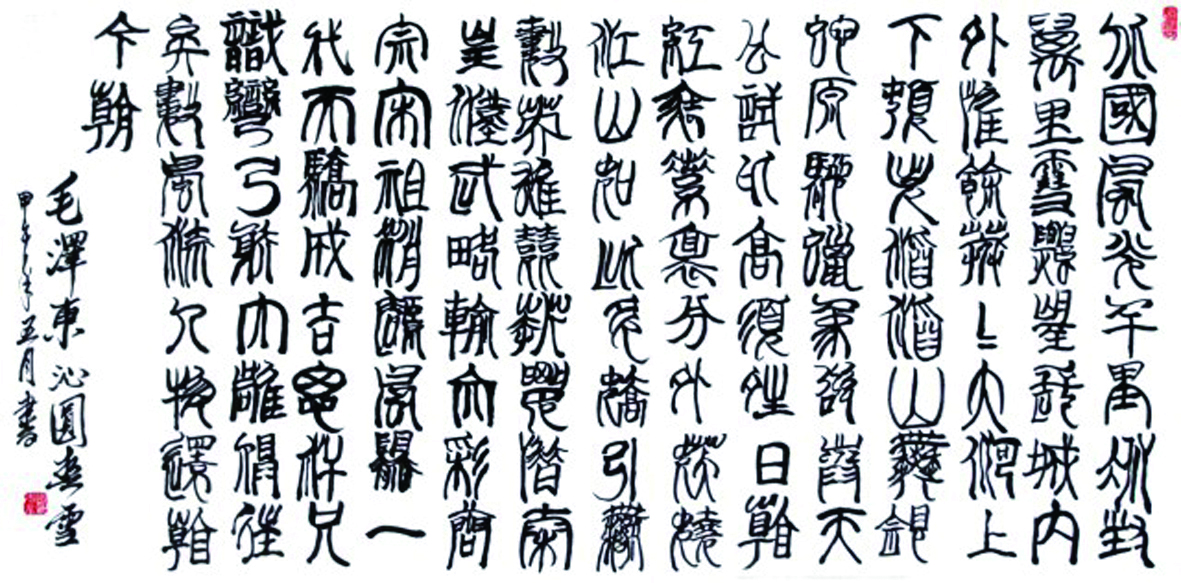 北國風光千里冰封
萬里雪飄望長城內
外惟餘莽〻大河上
下頓失滔滔山舞銀
蛇原馳蠟象欲與天
公試比高須晴日看
紅裝素裹分外妖嬈
江山如此多嬌引無
數英雄競折腰惜秦
皇漢武略輸文彩唐
宗宋祖稍遜風騷一
代天驕成吉思汗只
識彎弓射大雕俱往
矣數風流人物還看
今朝
毛澤東沁圓春雪
甲午年五月書